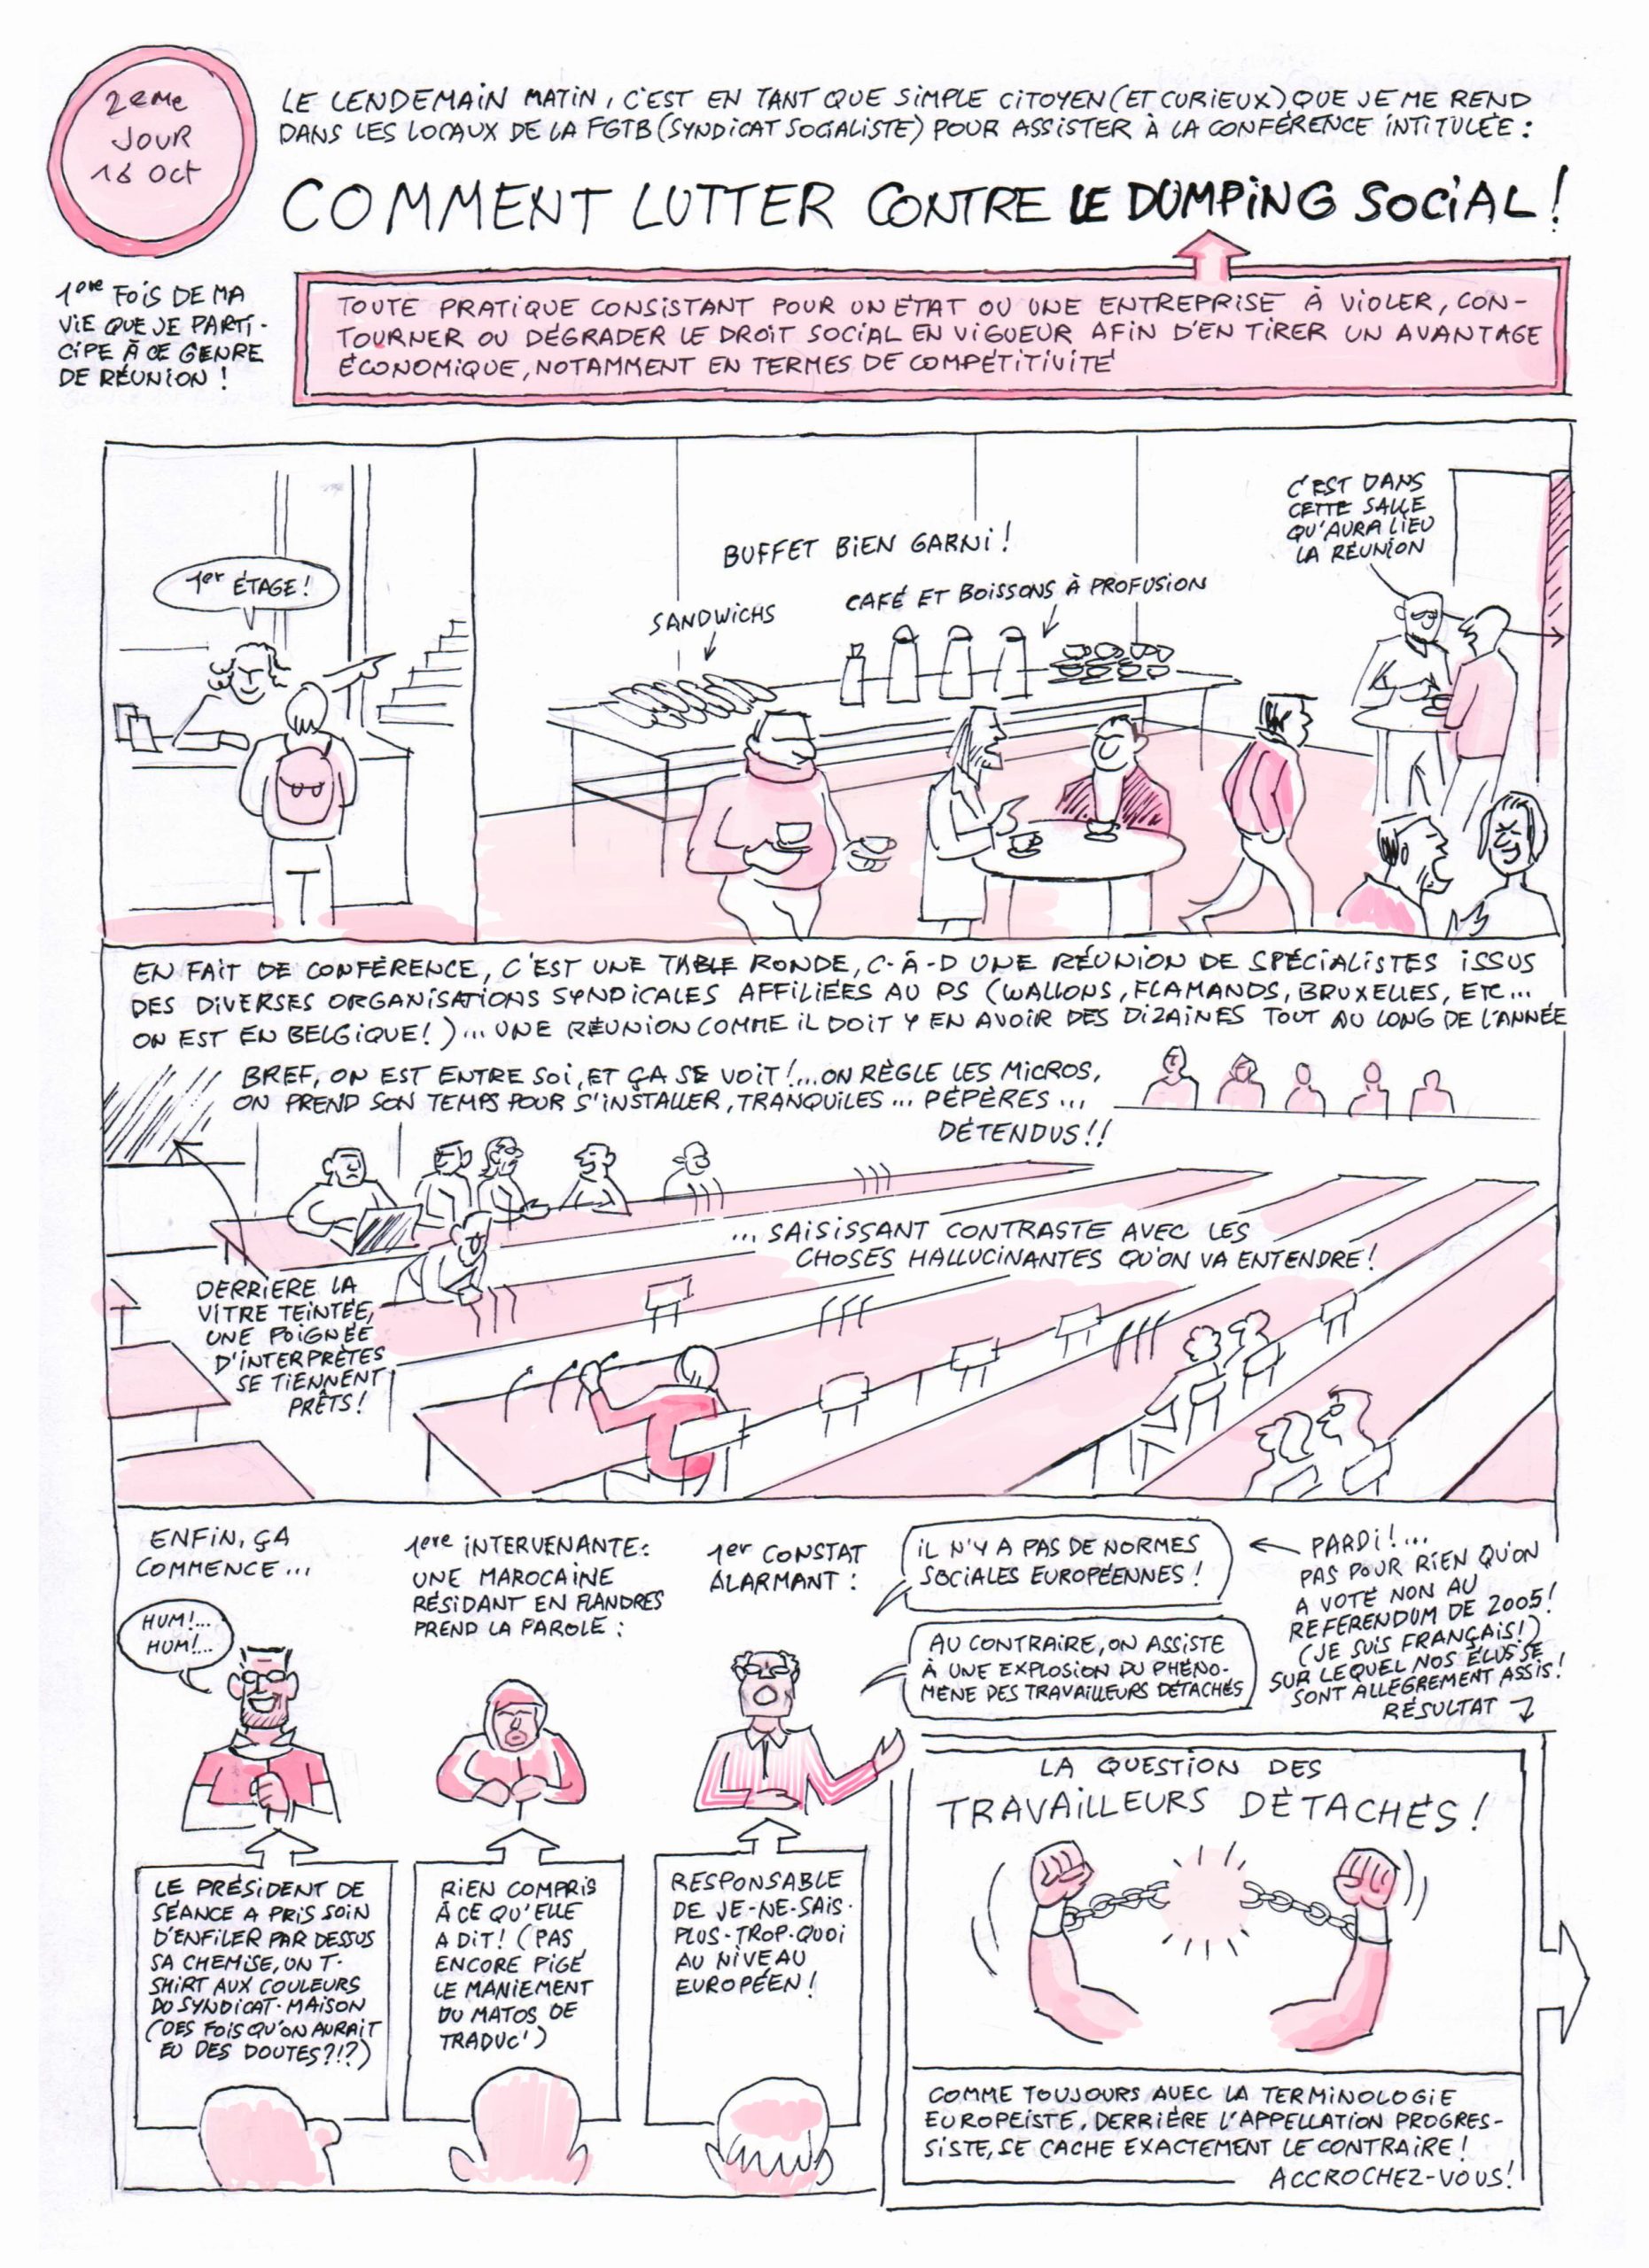 2eme
JOUR
16 Oct
LE LENDEMAIN MATIN, C'EST EN TANT QUE SIMPLE CITOYEN (ET CURIEUX) QUE JE ME REND
DANS LES LOCAUX DE LA FGTB (SYNDICAT SOCIALISTE) POUR ASSISTER À LA CONFÉRENCE INTITULÉE :
COMMENT LUTTER CONTRE LE DUMPING SOCIAL !
1ere FOIS DE MA
VIE QUE JE PARTI-
CIPE À CE GENRE
DE RÉUNION !
TOUTE PRATIQUE CONSISTANT POUR UN ÉTAT OU UNE ENTREPRISE À VIOLER, CON-
TOURNER OU DÉGRADER LE DROIT SOCIAL EN VIGUEUR AFIN D'EN TIRER UN AVANTAGE
ÉCONOMIQUE, NOTAMMENT EN TERMES DE COMPÉTITIVITÉ
1er ÉTAGE !
BUFFET BIEN GARNI !
SANDWICHS
CAFÉ ET BOISSONS À PROFUSION
C'EST DANS
CETTE SALLE
QU'AURA LIEU
LA RÉUNION
EN FAIT DE CONFÉRENCE, C'EST UNE TABLE RONDE, C-À-D UNE RÉUNION DE SPÉCIALISTES ISSUS
DES DIVERSES ORGANISATIONS SYNDICALES AFFILIÉES AU PS (WALLONS, FLAMANDS, BRUXELLES, ETC...
ON EST EN BELGIQUE !)... UNE RÉUNION COMME IL DOIT Y EN AVOIR DES DIZAINES TOUT AU LONG DE L'ANNÉE
BREF, ON EST ENTRE SOI, ET ÇA SE VOIT !... ON RÈGLE LES MICROS,
ON PREND SON TEMPS POUR S'INSTALLER, TRANQUILES... PÉPÈRES...
DÉTENDUS !!
... SAISISSANT CONTRASTE AVEC LES
CHOSES HALLUCINANTES QU'ON VA ENTENDRE !
DERRIERE LA
VITRE TEINTÉE,
UNE POIGNÉE
D'INTERPRÈTES
SE TIENNENT
PRÊTS !
ENFIN, ÇA
COMMENCE...
HUM !...
HUM !...
1ere INTERVENANTE :
UNE MAROCAINE
RÉSIDANT EN FLANDRES
PREND LA PAROLE :
1er CONSTAT
ALARMANT :
IL N'Y A PAS DE NORMES
SOCIALES EUROPÉENNES !
AU CONTRAIRE, ON ASSISTE
À UNE EXPLOSION DU PHÉNO-
MÈNE DES TRAVAILLEURS DÉTACHÉS
PARDI !...
PAS POUR RIEN QU'ON
A VOTÉ NON AU
REFERENDUM DE 2005 !
(JE SUIS FRANÇAIS !)
SUR LEQUEL NOS ÉLUS SE
SONT ALLÉGREMENT ASSIS !
RÉSULTAT
LE PRÉSIDENT DE
SÉANCE A PRIS SOIN
D'ENFILER PAR DESSUS
SA CHEMISE, UN T-
SHIRT AUX COULEURS
DU SYNDICAT-MAISON
(DES FOIS QU'ON AURAIT
EU DES DOUTES ?!?)
RIEN COMPRIS
À CE QU'ELLE
A DIT ! (PAS
ENCORE PIGÉ
LE MANIEMENT
DU MATOS DE
TRADUC')
RESPONSABLE
DE JE-NE-SAIS-
PLUS-TROP-QUOI
AU NIVEAU
EUROPÉEN !
LA QUESTION DES
TRAVAILLEURS DÉTACHÉS !
COMME TOUJOURS AVEC LA TERMINOLOGIE
EUROPÉISTE, DERRIÈRE L'APPELLATION PROGRES-
SISTE, SE CACHE EXACTEMENT LE CONTRAIRE !
ACCROCHEZ-VOUS !